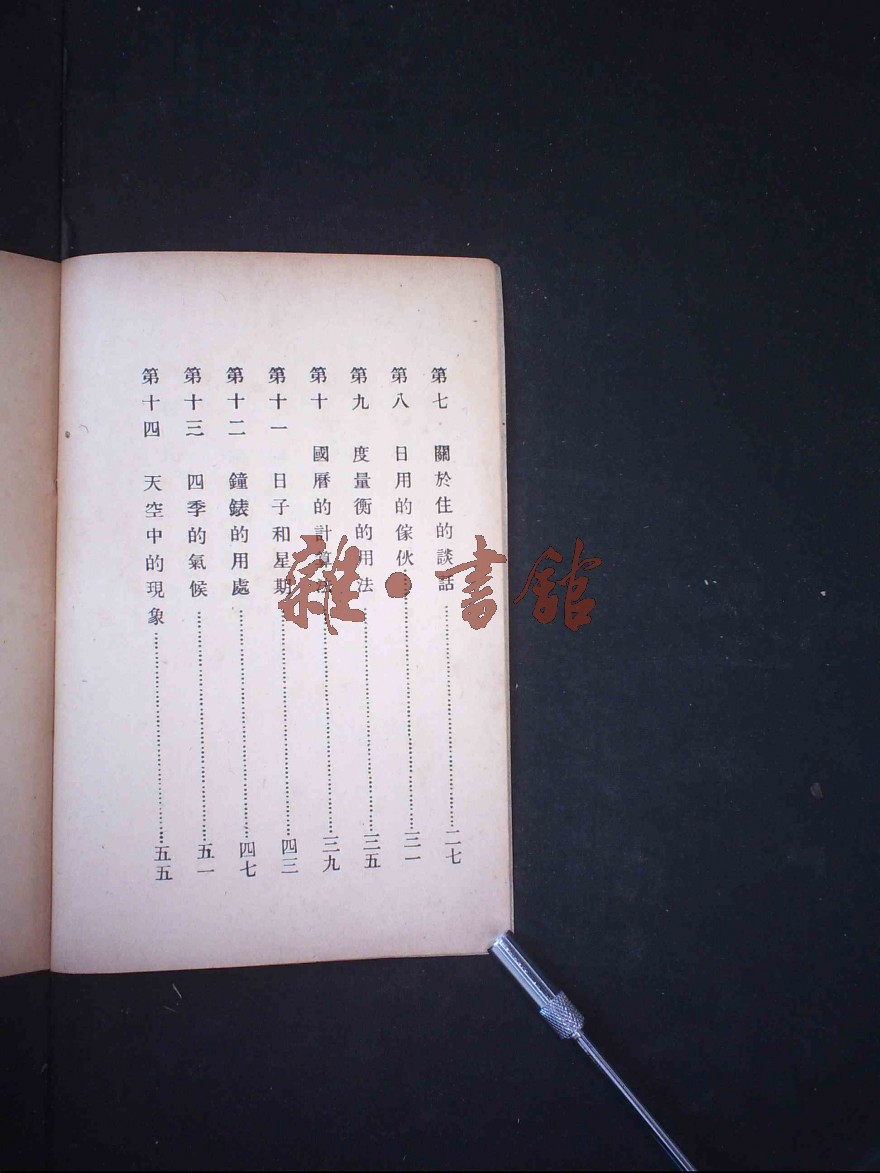 第七 關於住的談話……二七
第八 日用的傢伙……三一
第九 度量衡的用法……三五
第十 國曆的計算法……三九
第十一 日子和星期……四三
第十二 鐘錶的用處……四七
第十三 四季的氣候……五一
第十四 天空中的現象……五五
雜·書館